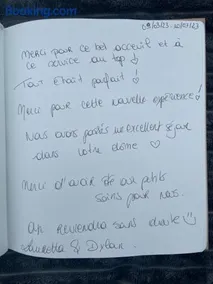 Booking.com
Merci pour ce bel accueil et à
ce service au top
Tout était parfait !
Merci pour cette nouvelle expérience !
Nous avons passés un excellent séjour
dans votre dôme ♡
Merci d'avoir été au petits
soins pour nos.
On reviendra sans doute
& Dylan.